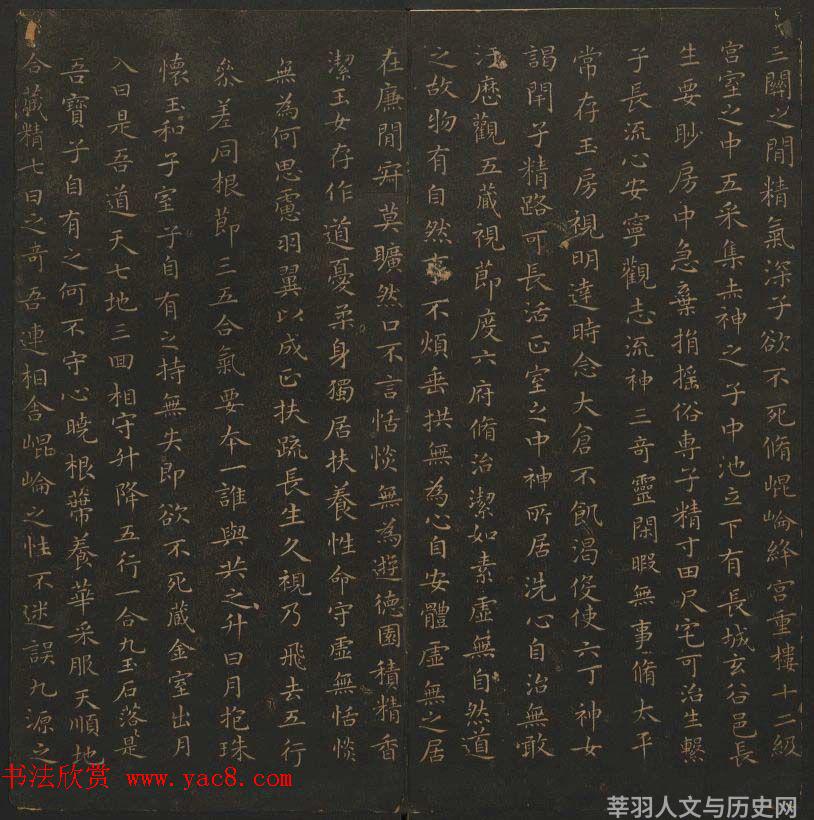 三關之間精氣深子欲不死脩崐崘絳宮重樓十二級
宮室之中五采集赤神之子中池立下有長城玄谷邑長
生要眇房中急棄捐搖俗專子精寸田尺宅可治生繫
子長流心安寧觀志流神三奇靈閑暇無事脩太平
常存玉房視明達時念大倉不飢渴役使六丁神女
謁閇子精路可長活正室之中神所居洗心自治無敢
汙歷觀五藏視節度六府脩治潔如素虛無自然道
之故物有自然事不煩垂拱無為心自安體虛無之居
在廉間寂莫曠然口不言恬惔無為遊德園積精香
潔玉女存作道憂柔身獨居扶養性命守虛無恬惔
無為何思慮羽翼以成正扶疏長生久視乃飛去五行
參差同根節三五合氣要本一誰與共之升日月抱珠
懷玉和子室子自有之持無失即欲不死藏金室出月
入日是吾道天七地三回相守升降五行一合九玉石落是
吾寶子自有之何不守心曉根蔕養華采服天順地
合藏精七日之奇吾連相舍崐崘之性不迷誤九源之
书法欣赏 www.yac8.com
莘羽人文与历史网